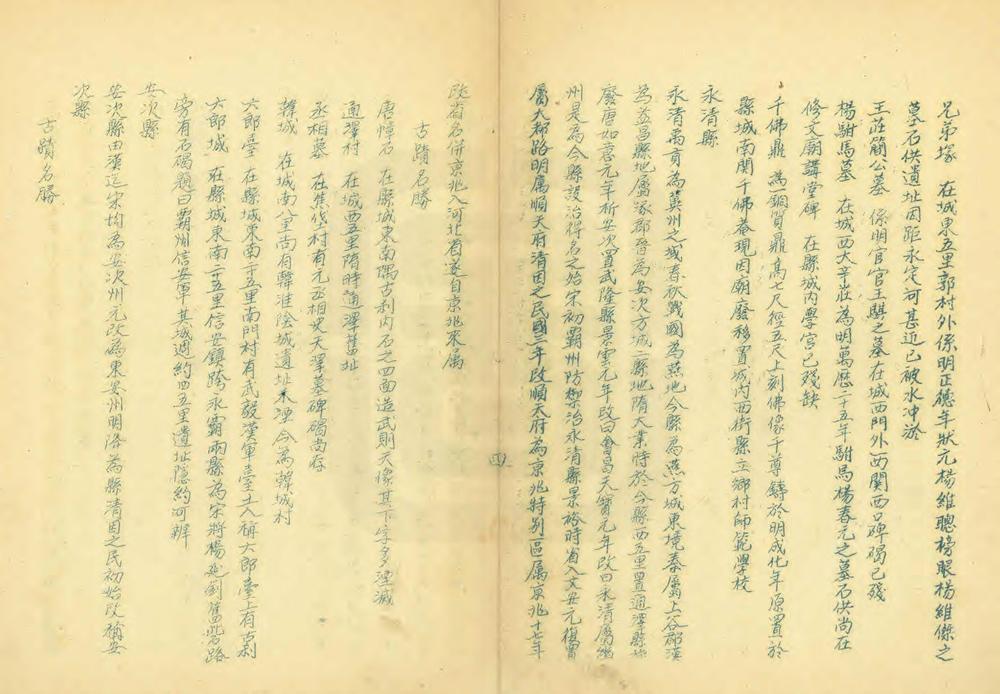 兄弟塚　在城東五里郭村外係明正德年狀元楊維聰榜眼楊維傑之
墓石供遺址因距永定河甚近已被水冲於
王莊簡公墓　係明官官王騏之墓在城西門外西関西口碑碣已殘
楊駙馬墓　在城西大辛庄為明萬歷二十五年駙馬楊春元之墓石供尚在
修文廟講堂碑　在縣城內學宮已殘缺
千佛鼎　為一銅質鼎高七尺徑五尺上刻佛像千尊鑄於明成化年原置於
縣城南関千佛菴現因廟廢移置城內西街縣立鄉村師範學校
永清縣
永清禹貢為冀州之域春秋戰國為燕地今縣為燕方城東境秦屬上谷郡漢
為益昌縣地屬涿郡晉為安次方城二縣地隋大業時於今縣西五里置通澤縣
廢唐如意元年析安次置武隆縣景雲元年改曰會昌天寶元年改曰永清屬幽
州是為今縣設治得名之始宋初霸州防禦治永清縣景祐時省入文安元復置
屬大都路明屬順天府清因之民國三年改順天府為京兆特別區屬京兆十七年
改省名併京兆入河北省遂自京兆來屬
古蹟名勝
唐幢石　在縣城東南隅古刹內石之四面造武則天像其下字多湮滅
通澤村　在城西五里隋時通澤舊址
丞相墓　在焦垡村有元丞相史天澤墓碑碣尚存
韓城　在城南八里尚有韓淮陰城遺址未湮今為韓城村
六郎臺　在縣城東南二十五里南門村有武毅漢軍臺土人稱六郎臺上有古刹
六郎城　在縣城東南二十五里信安鎮跨永霸兩縣為宋將楊延朗舊營路
旁有石碣題曰霸州信安軍其城週約四五里遺址隱約可辨
安次縣
安次縣由漢迄宋均為安次州元改為東安州明降為縣清因之民初始改稱安
次縣
古蹟名勝
四